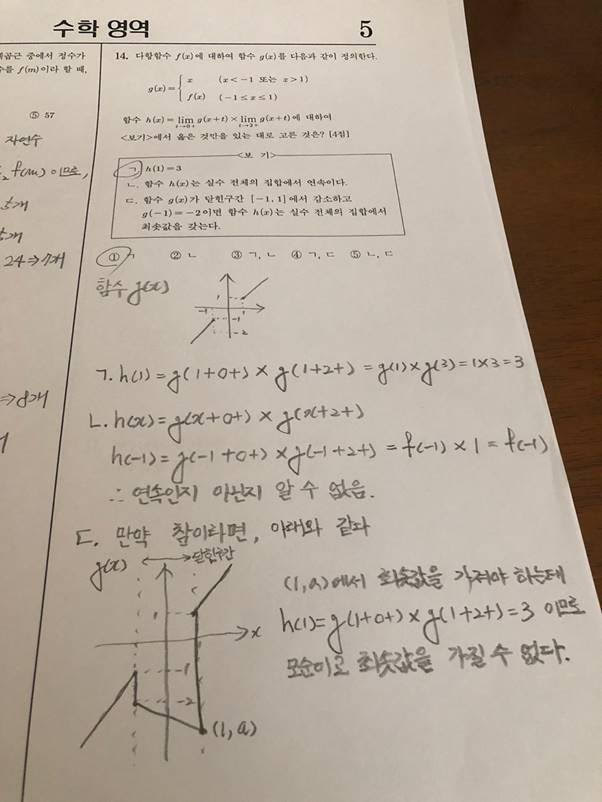 수학 영역
5
중에서 정수가
f(m)이라 할 때,
⑤ 57
자연수
f(m) 이므로,
24⇒7개
⇒8개
14. 다항함수 f(x)에 대하여 함수 g(x)를 다음과 같이 정의한다.
g(x)={ x (x<-1 또는 x>1)
f(x) (-1≤x≤1)
함수 h(x)=lim t→0+ g(x+t)×lim t→2+ g(x+t)에 대하여
<보기>에서 옳은 것만을 있는 대로 고른 것은? [4점]
<보 기>
ㄱ. h(1)=3
ㄴ. 함수 h(x)는 실수 전체의 집합에서 연속이다.
ㄷ. 함수 g(x)가 닫힌구간 [-1, 1]에서 감소하고
g(-1)=-2이면 함수 h(x)는 실수 전체의 집합에서
최솟값을 갖는다.
① ㄱ ② ㄴ ③ ㄱ, ㄴ ④ ㄱ, ㄷ ⑤ ㄴ, ㄷ
함수 g(x)
1
-1
-1
-2
ㄱ. h(1) = g(1+0+) × g(1+2+) = g(1)×g(3)=1×3=3
ㄴ. h(x)=g(x+0+) × g(x+2+)
h(-1)=g(-1+0+) × g(-1+2+) = f(-1) × 1 = f(-1)
∴ 연속인지 아닌지 알 수 없음.
ㄷ. 만약 참이라면, 아래와 같다
g(x)
닫힌구간
1
x
-1
-2
(1, a)
(1,a)에서 최솟값을 가져야 하는데
h(1)=g(1+0+) × g(1+2+)=3 이므로
모순이고 최솟값을 가질 수 없다.